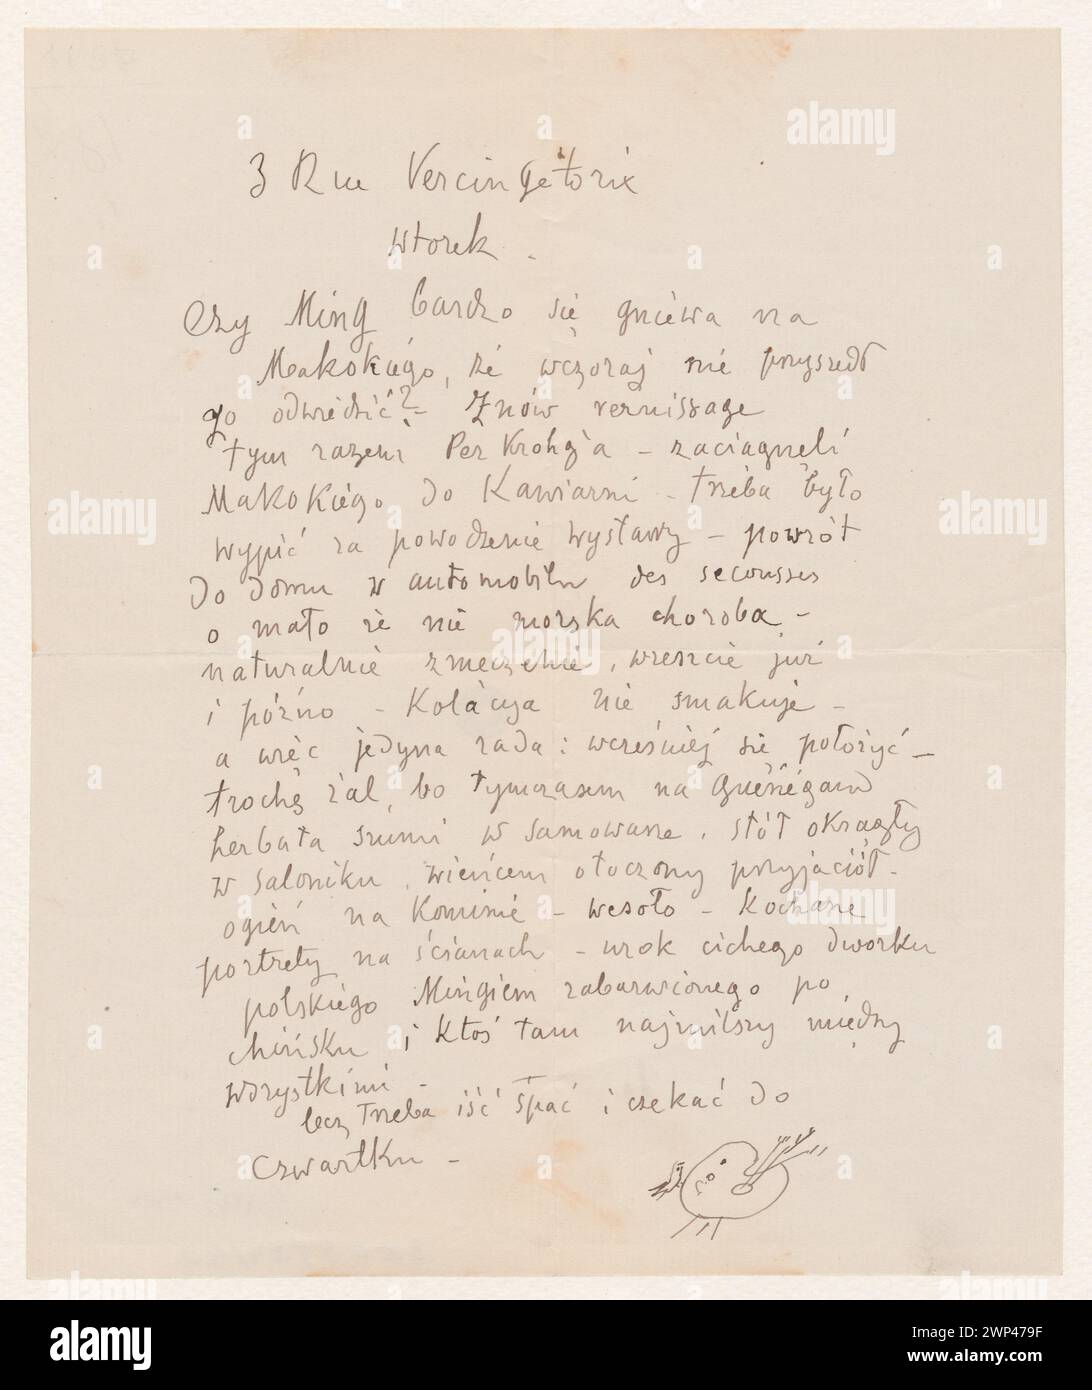 3 Rue Vercingétorix
Wtorek -
Czy Ming bardzo się gniewa na
Makokiego, że wczoraj nie przyszedł
go odwiedzić? - Znów vernissage
tym razem Per Krohg'a - zaciągneli
Makokiego do Kawiarni - trzeba było
wypić za powodzenie wystawy - powrót
do domu w automobilu des secousses
o mało że nie morska choroba -
naturalnie zmęczenie, wreszcie już
i późno - Kolacya nie smakuje -
a więc jedyna rada: wcześniej się położyć -
trochę żal, bo tymczasem na Guénégaud
herbata szumi w samowarze, stół okrągły
w saloniku, wieńcem otoczony przyjaciół -
ogień na kominie - wesoło - Kochane
portrety na ścianach - urok cichego dworku
polskiego Mingiem zabarwionego po
chińsku i ktoś tam najmilszy między
wszystkimi -
lecz trzeba iść spać i czekać do
Czwartku -
alamy
alamy
alamy
alamy
alamy
alamy
alamy
a
a
a
a
a
a
a
a
a
a
a
a
a
a
alamy
Image ID: 2WP479F
www.alamy.com